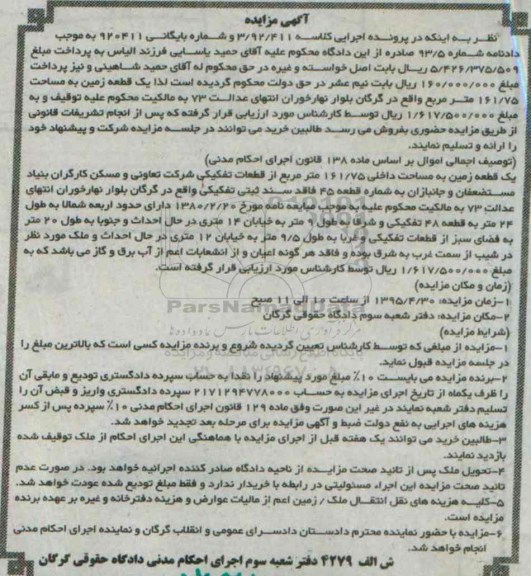 آگهی مزایده
نظر به اینکه در پرونده اجرایی کلاسه ۳/۹۲/۴۱۱ و شماره بایگانی ۹۲۰۴۱۱ به موجب
دادنامه شماره ۹۳/۵ صادره از این دادگاه محکوم علیه آقای حمید یاسایی فرزند الیاس به پرداخت مبلغ
۵/۴۲۶/۳۷۵/۵۰۹ ریال بابت اصل خواسته و غیره در حق محکوم له آقای حمید شاهینی و نیز پرداخت
مبلغ ۱۶۰/۰۰۰/۰۰۰ ریال بابت نیم عشر در حق دولت محکوم گردیده است لذا یک قطعه زمین به مساحت
۱۶۱/۷۵ متر مربع واقع در گرگان بلوار نهارخوران انتهای عدالت ۷۳ به مالکیت محکوم علیه توقیف و به
مبلغ ۱/۶۱۷/۵۰۰/۰۰۰ ریال توسط کارشناس مورد ارزیابی قرار گرفته که پس از انجام تشریفات قانونی
از طریق مزایده حضوری بفروش می رسد طالبین خرید می توانند در جلسه مزایده شرکت و پیشنهاد خود
را ارائه و تسلیم نمایند.
(توصیف اجمالی اموال بر اساس ماده ۱۳۸ قانون اجرای احکام مدنی)
یک قطعه زمین به مساحت داخلی ۱۶۱/۷۵ متر مربع از قطعات تفکیکی شرکت تعاونی و مسکن کارگران بنیاد
مستضعفان و جانبازان به شماره قطعه ۴۵ فاقد سند ثبتی تفکیکی واقع در گرگان بلوار نهارخوران انتهای
عدالت ۷۳ به مالکیت محکوم علیه به موجب مبایعه نامه مورخ ۱۳۸۰/۲/۲۰ دارای حدود اربعه شمالا به طول
۲۴ متر به قطعه ۴۸ تفکیکی و شرقا به طول ۹ متر به خیابان ۱۴ متری در حال احداث و جنوبا به طول ۲۰ متر
به فضای سبز از قطعات تفکیکی و غربا به طول ۹/۵ متر به خیابان ۱۲ متری در حال احداث و ملک مورد نظر
در شیب از سمت غرب به شرق بوده و فاقد هر گونه اعیان و از انشعابات اعم از آب برق و گاز می باشد که به
مبلغ ۱/۶۱۷/۵۰۰/۰۰۰ ریال توسط کارشناس مورد ارزیابی قرار گرفته است.
(زمان و مکان مزایده)
۱-زمان مزایده: ۱۳۹۵/۴/۳۰ از ساعت ۱۰ الی ۱۱ صبح
۲-مکان مزایده: دفتر شعبه سوم دادگاه حقوقی گرگان
(شرایط مزایده)
۱-مزایده از مبلغی که توسط کارشناس تعیین گردیده شروع و برنده مزایده کسی است که بالاترین مبلغ را
در جلسه مزایده قبول نماید.
۲-برنده مزایده می بایست ۱۰٪ مبلغ مورد پیشنهاد را نقدا به حساب سپرده دادگستری تودیع و مابقی آن
را ظرف یکماه از تاریخ اجرای مزایده به حساب ۲۱۷۱۲۹۴۷۷۸۰۰۰ سپرده دادگستری واریز و قبض آن را
تسلیم دفتر شعبه نمایند در غیر این صورت وفق ماده ۱۲۹ قانون اجرای احکام مدنی ۱۰٪ سپرده پس از کسر
هزینه های اجرایی به نفع دولت ضبط و آگهی مزایده برای مرحله بعد تجدید خواهد شد.
۳-طالبین خرید می توانند یک هفته قبل از اجرای مزایده با هماهنگی این اجرای احکام از ملک توقیف شده
بازدید نمایند.
۴-تحویل ملک پس از تائید صحت مزایده از ناحیه دادگاه صادر کننده اجرائیه خواهد بود. در صورت عدم
تائید صحت مزایده این اجراء مسئولیتی در رابطه با خریدار ندارد و فقط مبلغ تودیع شده عودت خواهد شد.
۵-کلیه هزینه های نقل انتقال ملک / زمین اعم از مالیات عوارض و هزینه دفترخانه و غیره بر عهده برنده
مزایده است.
۶-مزایده با حضور نماینده محترم دادستان دادسرای عمومی و انقلاب گرگان و نماینده اجرای احکام مدنی
انجام خواهد شد.
ش الف ۴۲۷۹ دفتر شعبه سوم اجرای احکام مدنی دادگاه حقوقی گرگان